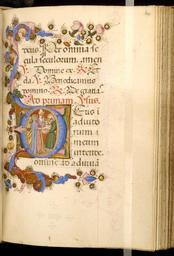 xeus. Per omnia se
cula seculorum. amen
V. Domine ex. R. Et
da V. Benedicamus
domino. R. Deo gratias
Ad primam. Vsus.
Deus i
adiuto
rium
meum
intende.
Domine ad adiuuā